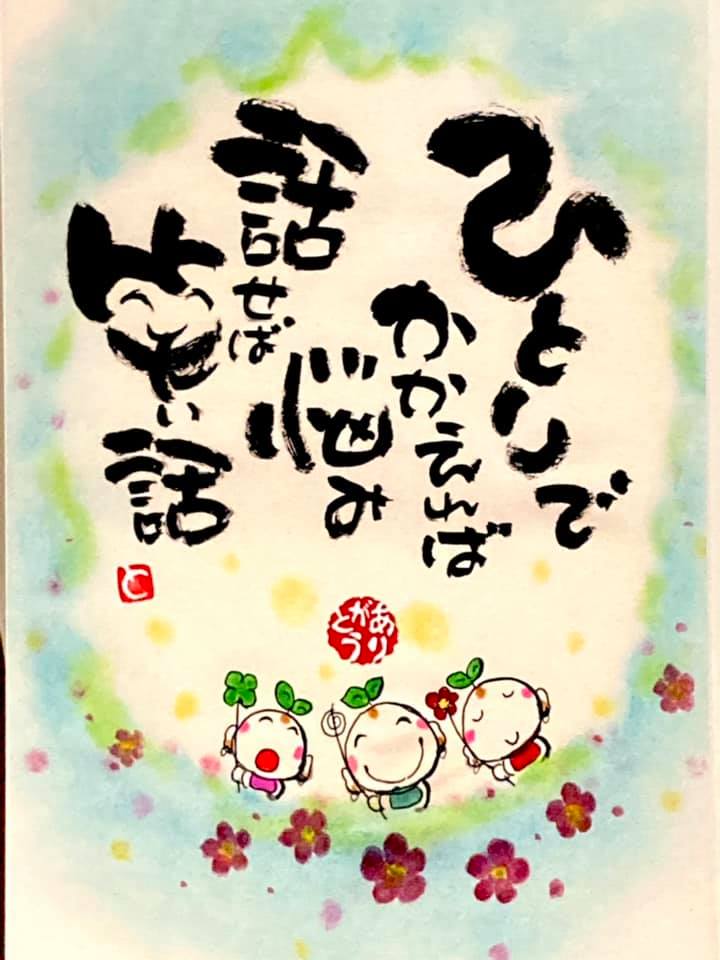 ひとりで
かかえれば
悩み
話せば
笑い話
ありがとう
と